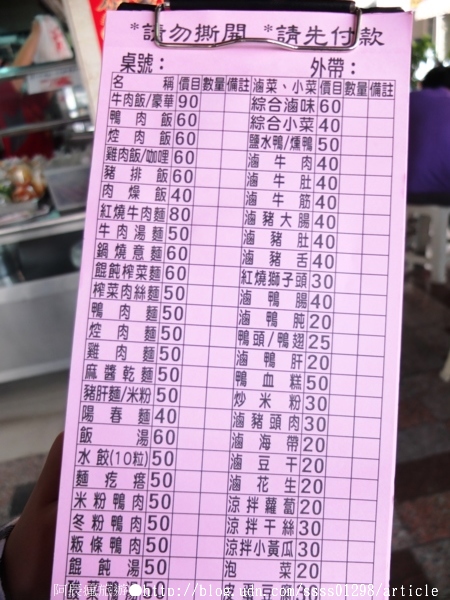 *請勿撕開 *請先付款
桌號： 外帶：
名稱 價目 數量 備註 滷菜、小菜 價目 數量 備註
牛肉飯/豪華 90 綜合滷味 60
鴨肉飯 60 綜合小菜 40
焢肉飯 60 鹽水鴨/燻鴨 50
雞肉飯/咖哩 60 滷牛肉 40
豬排飯 60 滷牛肚 40
肉燥飯 40 滷牛筋 40
紅燒牛肉麵 80 滷豬大腸 40
牛肉湯麵 50 滷豬肚 40
鍋燒意麵 60 滷豬舌 40
餛飩榨菜麵 60 紅燒獅子頭 30
榨菜肉絲麵 50 滷鴨腸 40
鴨肉麵 50 滷鴨肫 20
焢肉麵 50 鴨頭/鴨翅 25
雞肉麵 50 滷鴨肝 20
麻醬乾麵 50 鴨血糕 50
豬肝麵/米粉 50 炒米粉 30
陽春麵 40 滷豬頭肉 30
飯湯 60 滷海帶 20
水餃(10粒) 50 滷豆干 20
麵疙瘩 50 滷花生 20
米粉鴨肉 50 涼拌蘿蔔 20
冬粉鴨肉 50 涼拌干絲 30
粄條鴨肉 50 涼拌小黃瓜 30
餛飩湯 50 泡菜 20
http://blog.udn.com/ssss01298/article